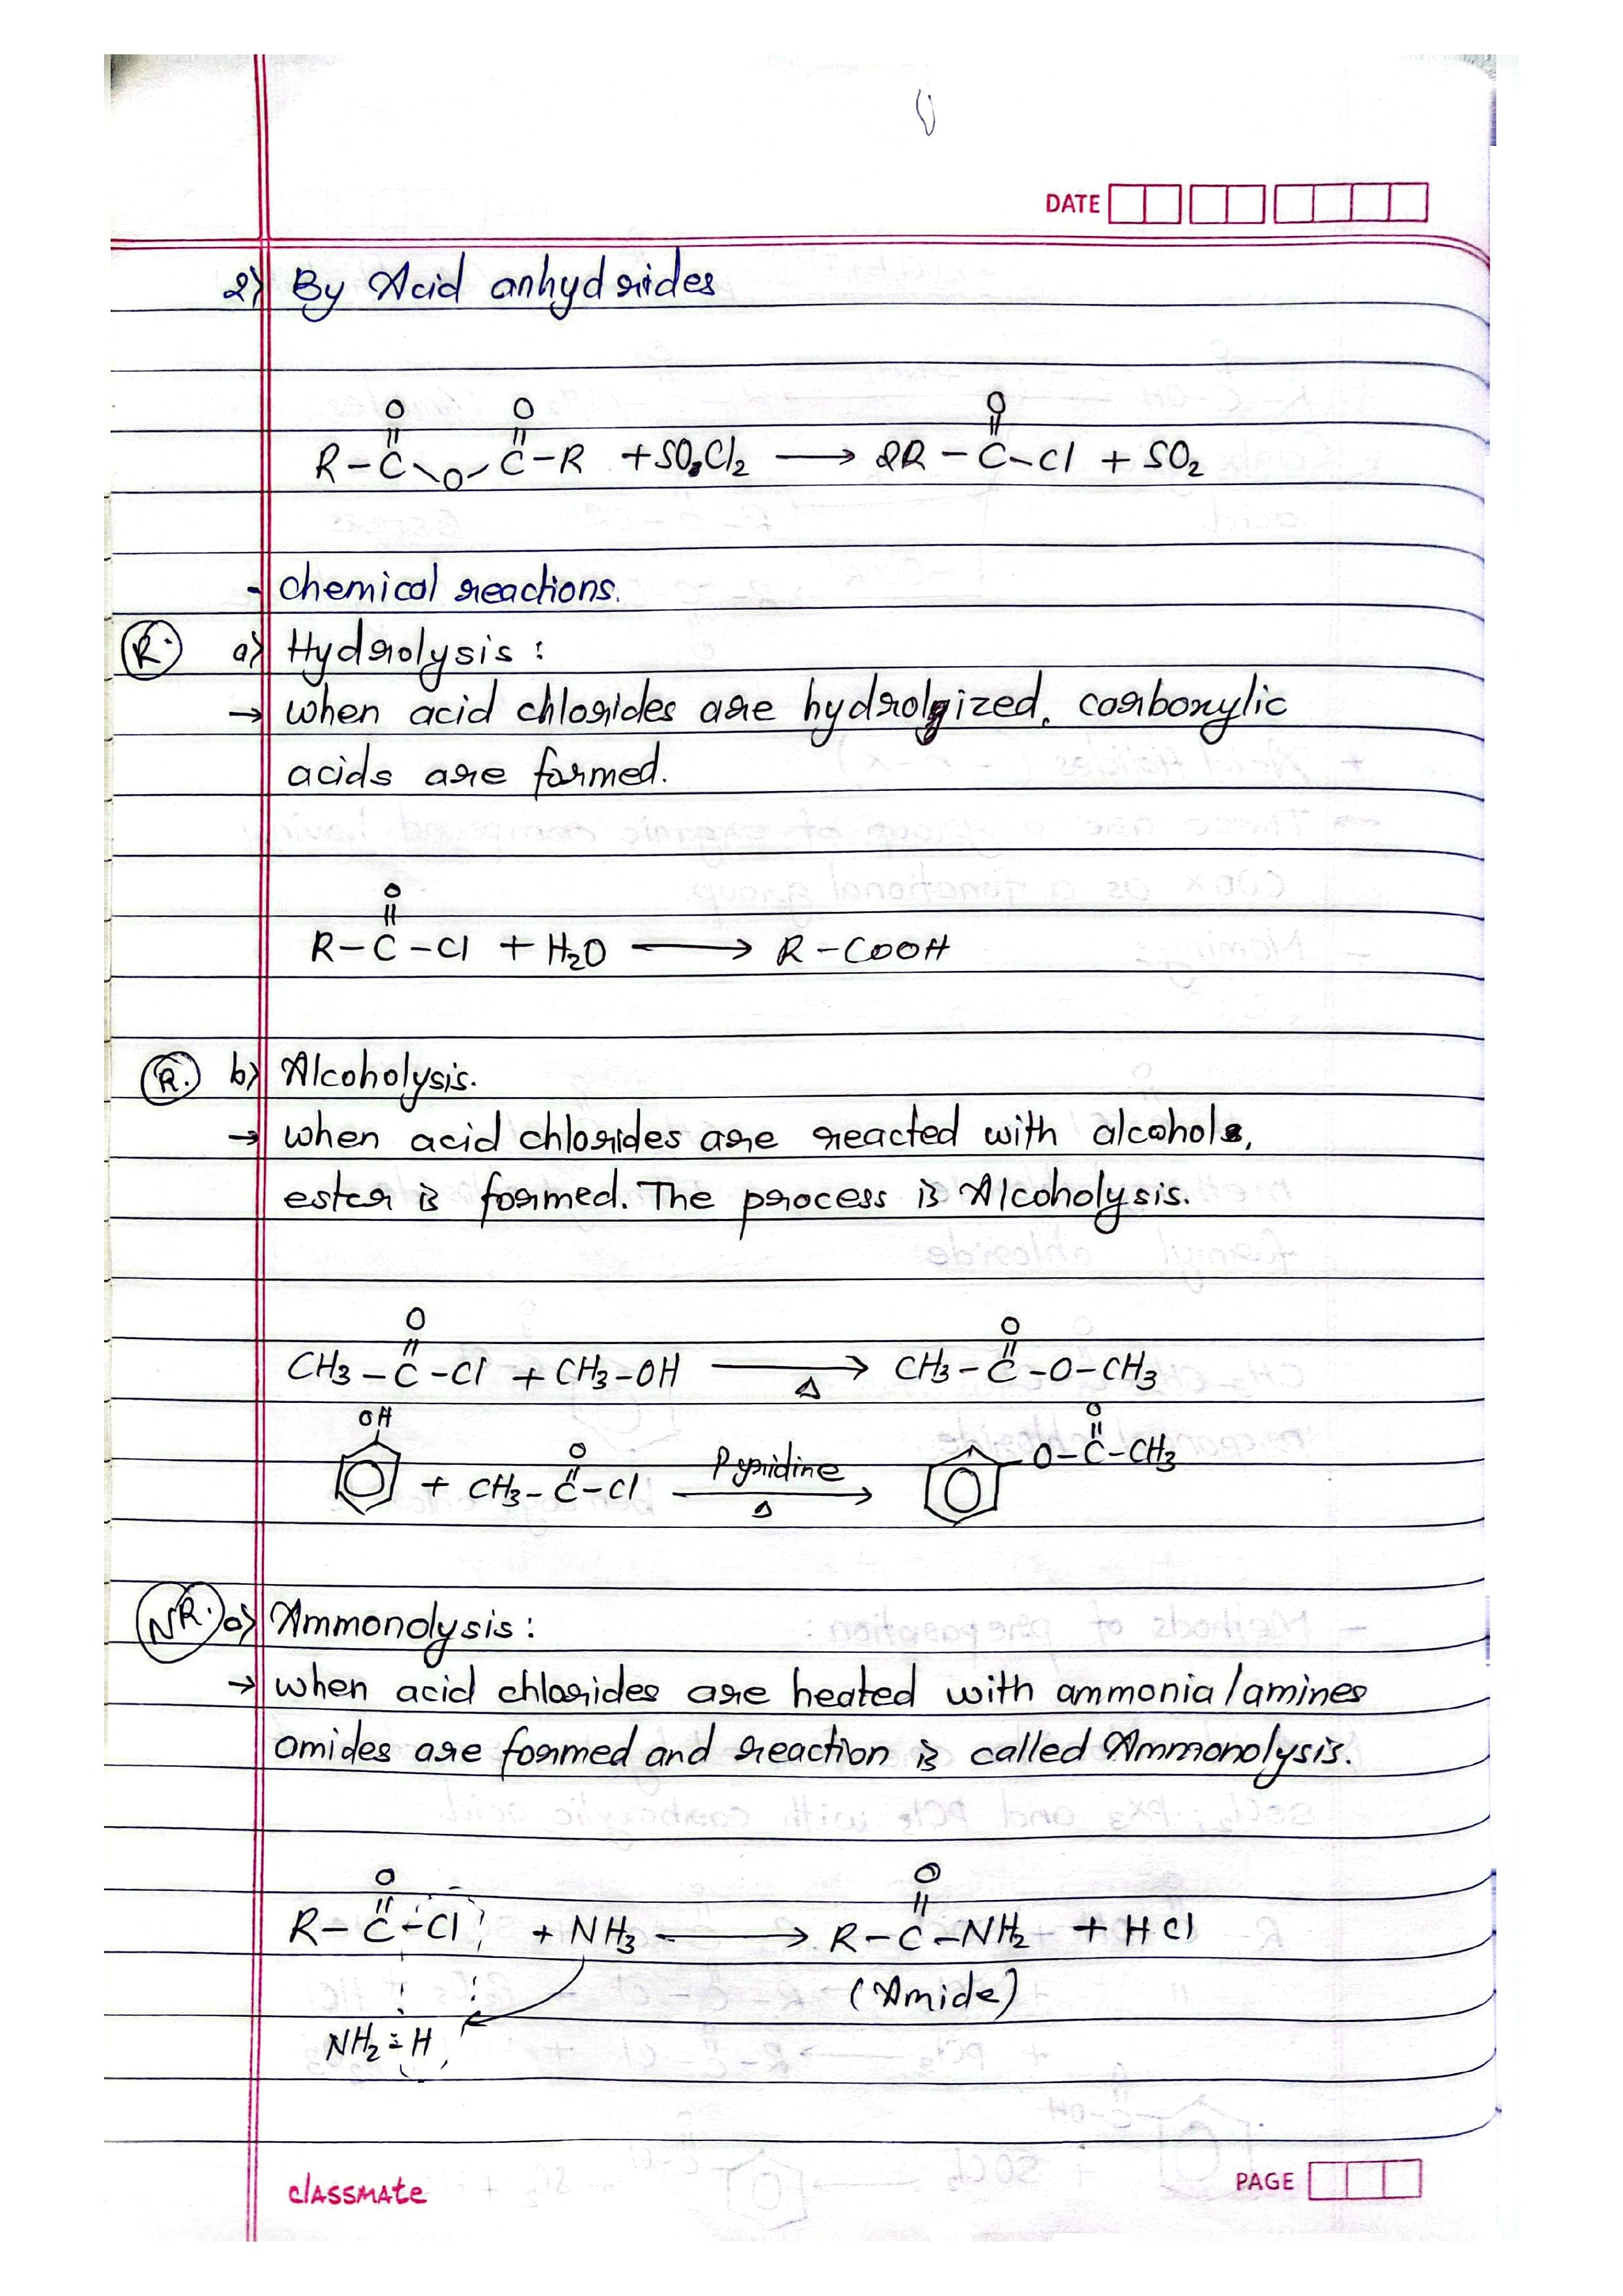 DATE
2) By Acid anhydrides
O O O
R-C-O-C-R + SO2Cl2 → 2R-C-Cl + SO2
- chemical reactions.
R. a) Hydrolysis:
→ when acid chlorides are hydrolyized, carboxylic
acids are formed.
O
R-C-Cl + H2O → R-COOH
R. b) Alcoholysis.
→ when acid chlorides are reacted with alcohols,
ester is formed. The process is Alcoholysis.
O O
CH3-C-Cl + CH3-OH → CH3-C-O-CH3
Δ
OH O Pyridine O
+ CH3-C-Cl → O-C-CH3
Δ
NR. c) Ammonolysis:
→ when acid chlorides are heated with ammonia/amines
amides are formed and reaction is called Ammonolysis.
O O
R-C-Cl + NH3 → R-C-NH2 + HCl
(Amide)
NH2-H
classmate
PAGE